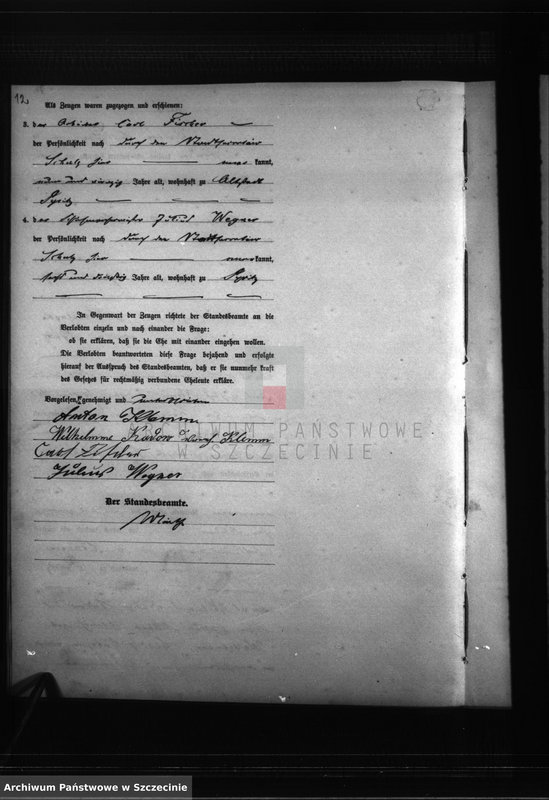 12.
Als Zeugen waren zugezogen und erschienen:
3. der Carl Fischer
der Persönlichkeit nach durch den Stadtsecretair
Schulz hier kannt,
neun und vierzig Jahre alt, wohnhaft zu Altstadt
Pyritz
4. der Julius Wegner
der Persönlichkeit nach durch den Stadtsecretair
Schulz hier kannt,
sechs und dreißig Jahre alt, wohnhaft zu Pyritz
In Gegenwart der Zeugen richtete der Standesbeamte an die
Verlobten einzeln und nach einander die Frage:
ob sie erklären, daß sie die Ehe mit einander eingehen wollen.
Die Verlobten beantworteten diese Frage bejahend und erfolgte
hierauf der Ausspruch des Standesbeamten, daß er sie nunmehr kraft
des Gesetzes für rechtmäßig verbundene Eheleute erkläre.
Vorgelesen, genehmigt und unterschrieben
Anton Klemm
Wilhelmine Klemm
Carl Fischer
Julius Wegner
Der Standesbeamte.
ARCHIWUM PAŃSTWOWE
W SZCZECINIE
Archiwum Państwowe w Szczecinie